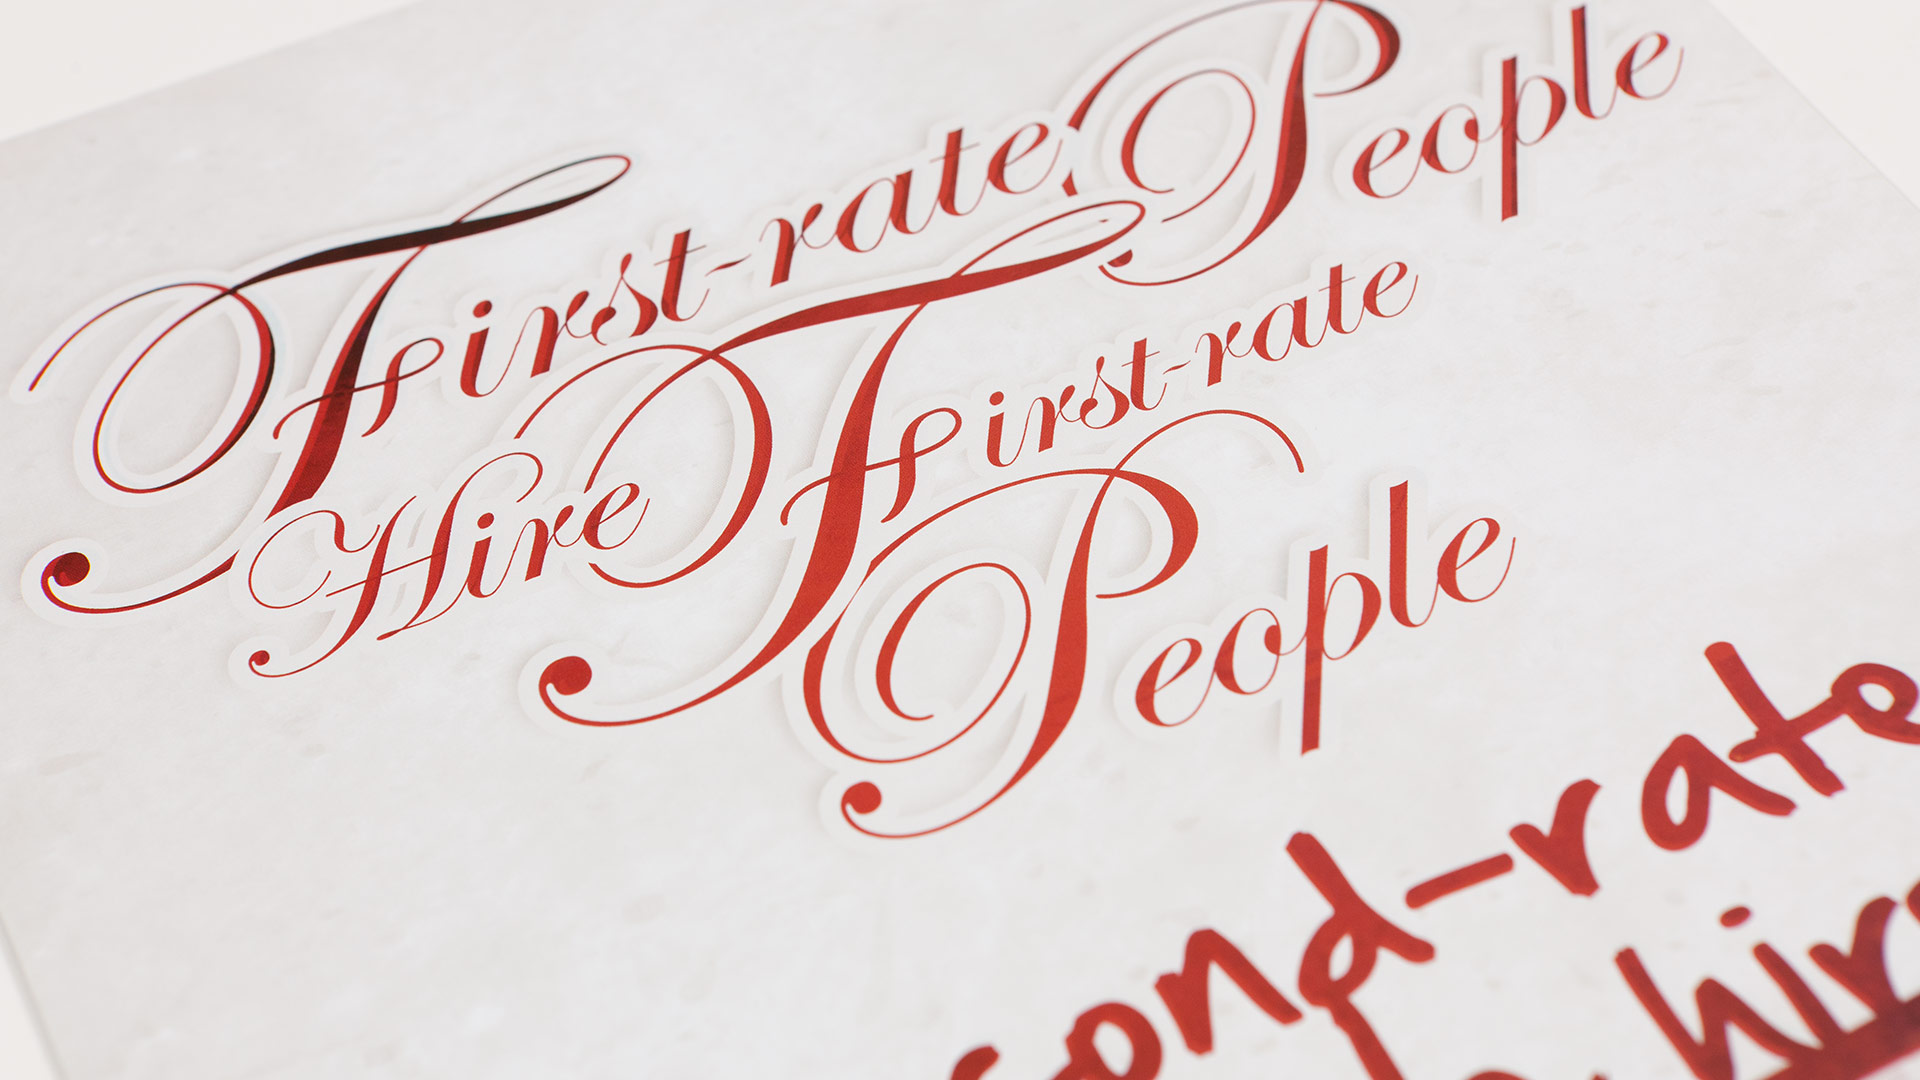 First-rate People
Hire First-rate
People
ond-rate
hir